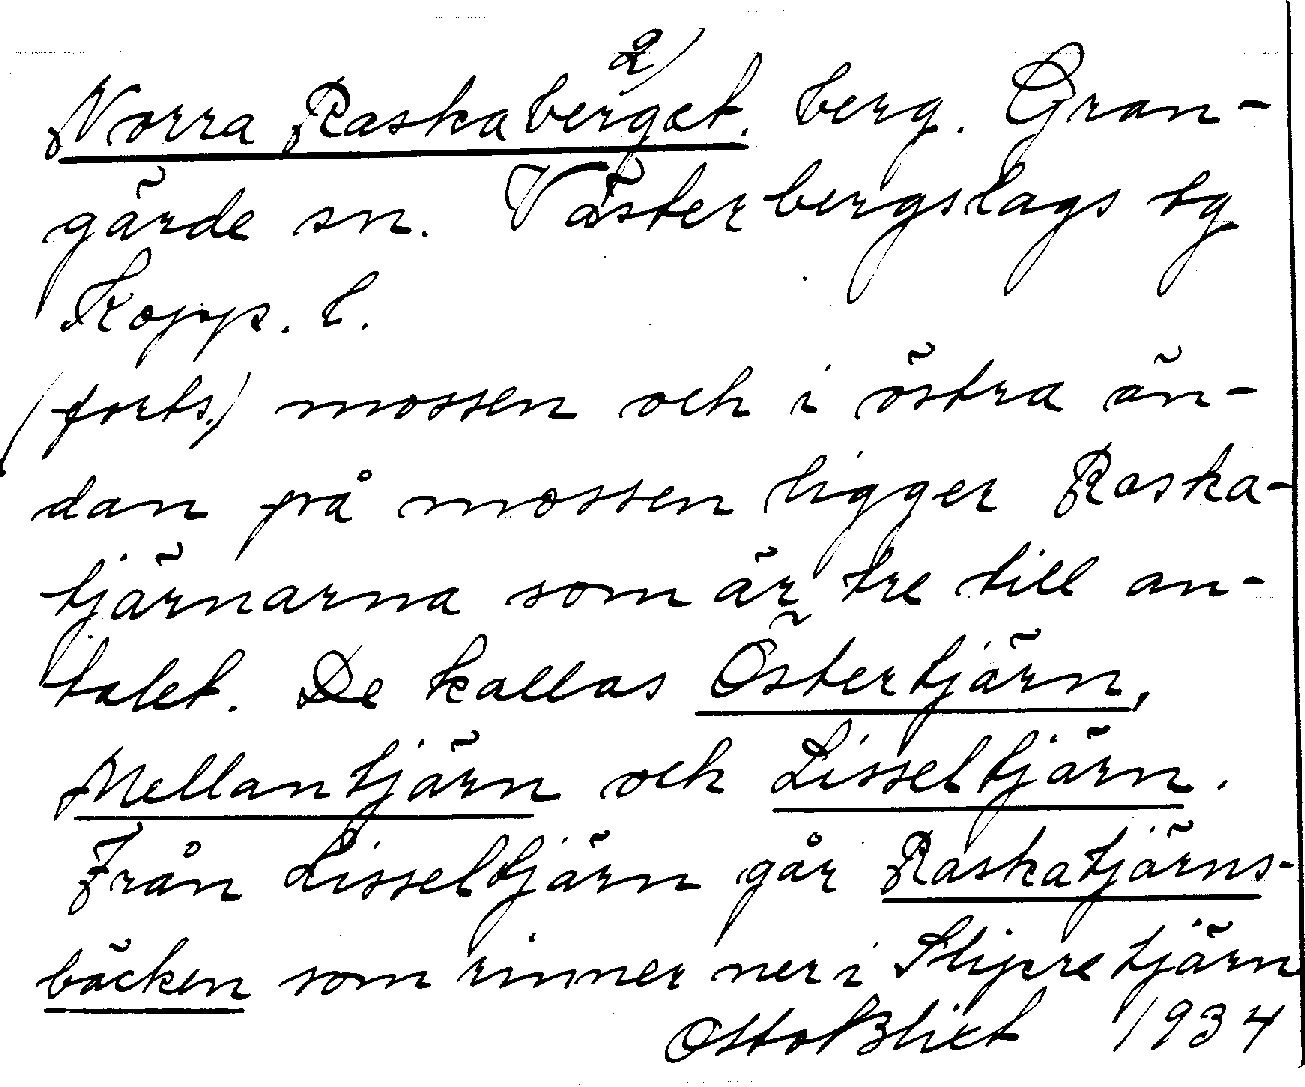 Norra Raskaberget. 2) berg. Gran-
gärde sn. Västerbergslags tg
Kopp. l.
(forts.) mossen och i östra än-
dan på mossen ligger Raska-
tjärnarna som är tre till an-
talet. De kallas Östertjärn,
Mellantjärn och Lisseltjärn.
Från Lisseltjärn går Raskatjärns-
bäcken som rinner ner i Slipretjärn
Otto Blixt 1934